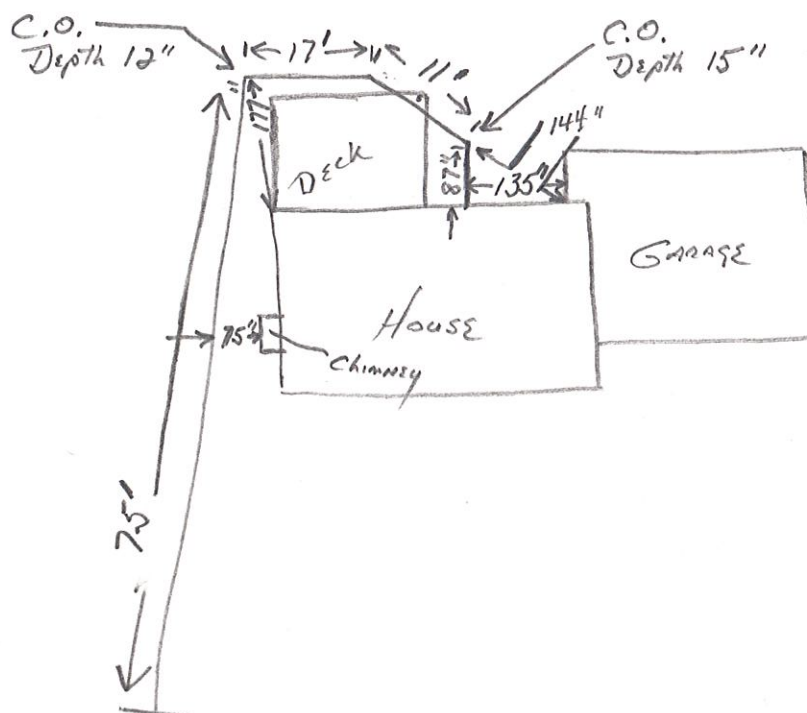 C.O.
Depth 12"
17'
11'
C.O.
Depth 15"
177"
144"
Deck
87"
135"
GARAGE
75"
HOUSE
Chimney
75'